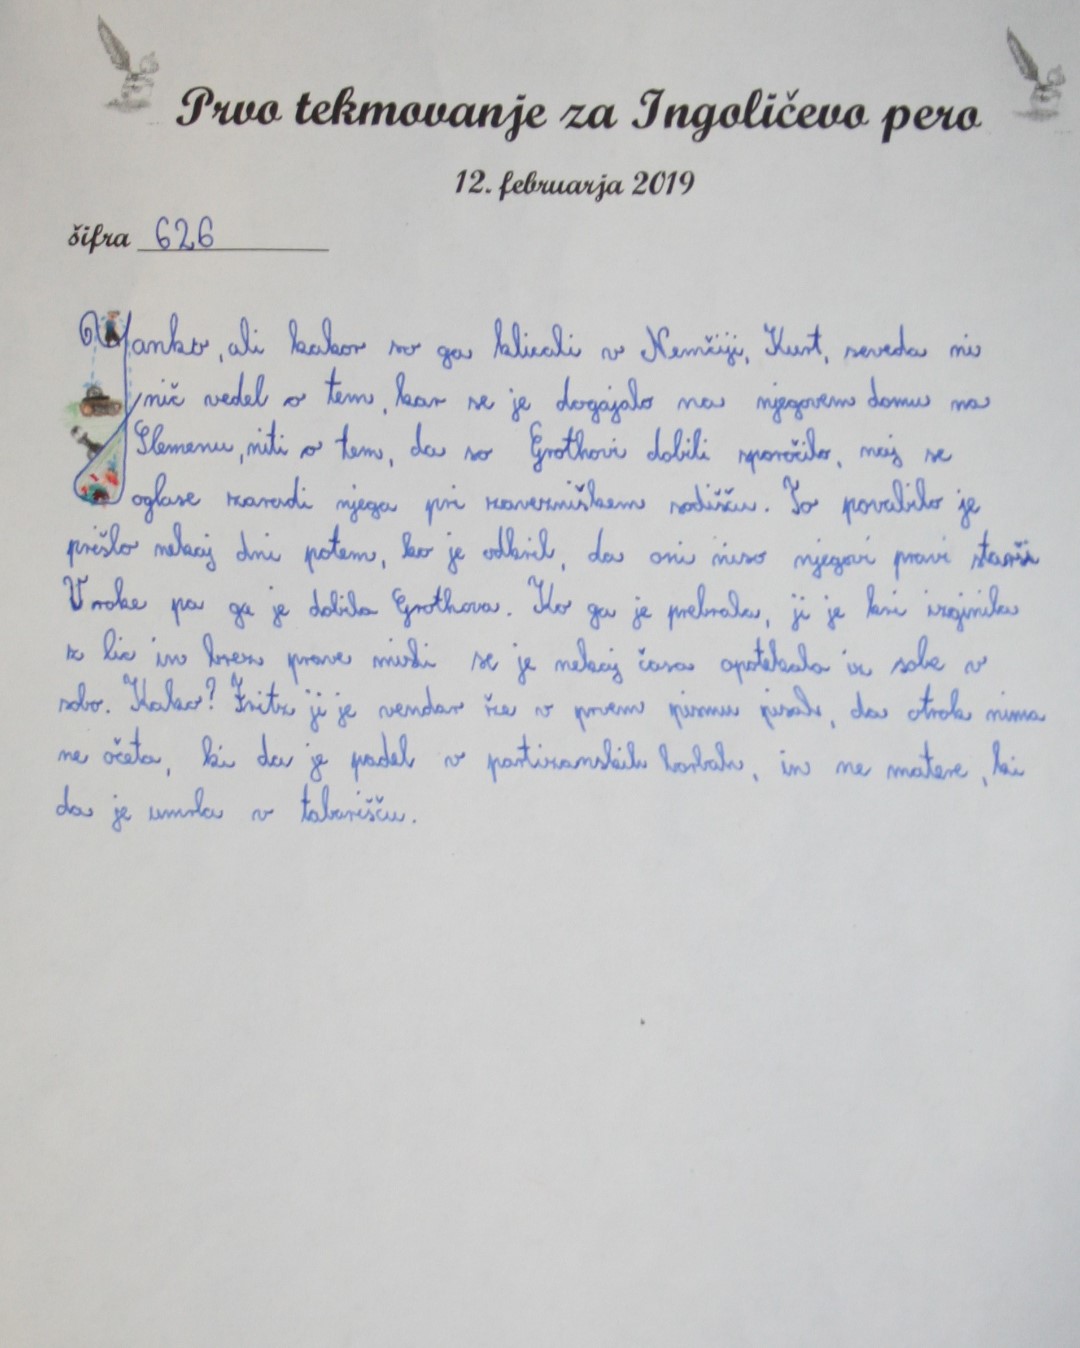 Prvo tekmovanje za Ingoličevo pero
12. februarja 2019
šifra 626
Janko, ali kakor so ga klicali v Nemčiji, Kurt, seveda ni
nič vedel o tem, kar se je dogajalo na njegovem domu na
Slemenu, niti o tem, da so Grothovi dobili sporočilo, naj se
oglase zaradi njega pri zavezniškem sodišču. To povabilo je
prišlo nekaj dni potem, ko je odkril, da oni niso njegovi pravi starši
V roke pa ga je dobila Grothova. Ko ga je prebrala, ji je kri izginila
iz lic in brez prave misli se je nekaj časa opotekala iz sobe v
sobo. Kako? Fritz ji je vendar že v prvem pismu pisal, da otrok nima
ne očeta, ki da je padel v partizanskih borbah, in ne matere, ki
da je umrla v taborišču.